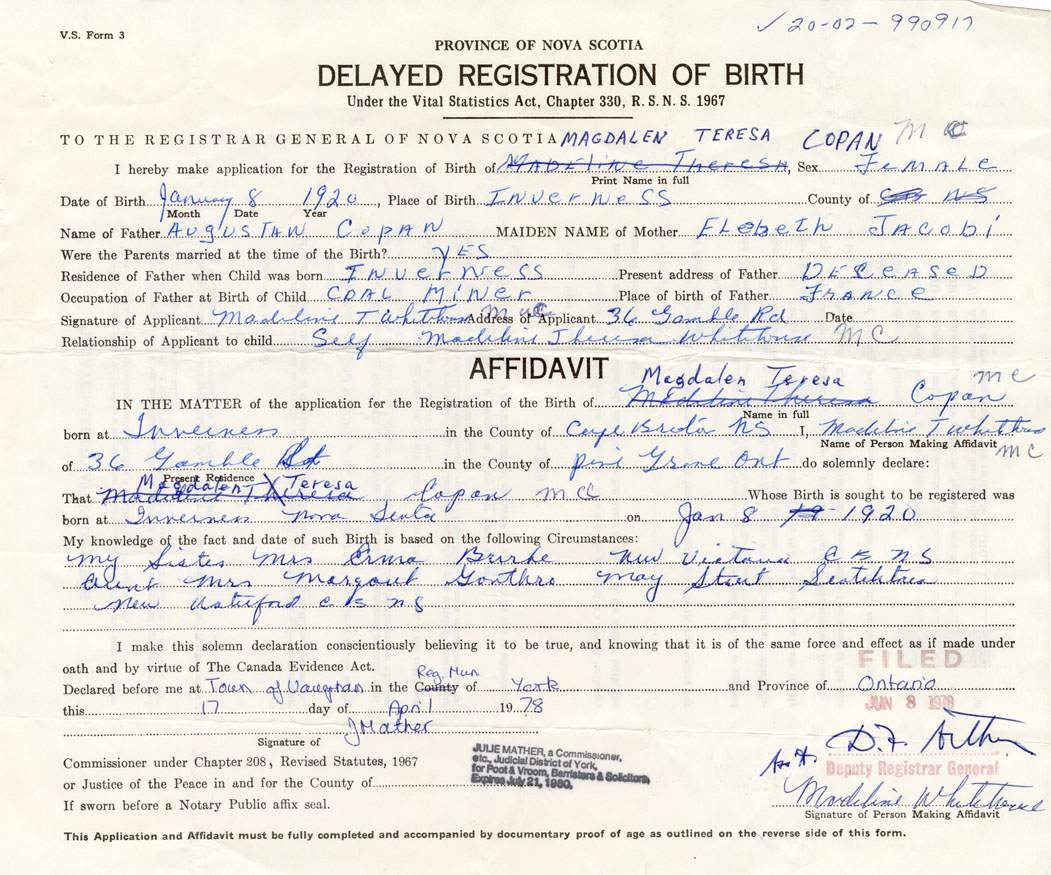 V.S. Form 3
✓ 20-02-990917
PROVINCE OF NOVA SCOTIA
DELAYED REGISTRATION OF BIRTH
Under the Vital Statistics Act, Chapter 330, R. S. N. S. 1967
TO THE REGISTRAR GENERAL OF NOVA SCOTIA MAGDALEN TERESA COPAN MC
I hereby make application for the Registration of Birth of MADELINE THERESA, Sex FEMALE
Print Name in full
Date of Birth January 8 1920, Place of Birth INVERNESS County of CB NS
Month Date Year
Name of Father AUGUSTAN COPAN MAIDEN NAME of Mother ELEBETH JACOBI
Were the Parents married at the time of the Birth? YES
Residence of Father when Child was born INVERNESS Present address of Father DECEASED
Occupation of Father at Birth of Child COAL MINER Place of birth of Father FRANCE
Signature of Applicant Madeline T Whitehouse Address of Applicant 36 Gamble Rd Date
Relationship of Applicant to child Self Madeline Theresa Whitehouse MC
AFFIDAVIT
Magdalen Teresa MC
IN THE MATTER of the application for the Registration of the Birth of Madeline Theresa Copan
Name in full
born at Inverness in the County of Cape Breton NS I, Madeline T Whitehouse
Name of Person Making Affidavit MC
of 36 Gamble Rd in the County of Pine Grove Ont do solemnly declare:
Present Residence
Magdalen Teresa
That Madeline Theresa Copan MC Whose Birth is sought to be registered was
born at Inverness Nova Scotia on Jan 8 19 1920
My knowledge of the fact and date of such Birth is based on the following Circumstances:
My Sister Mrs Erma Burke New Victoria C B NS
Aunt Mrs Margaret Gonthro May Street Scotchtown
New Waterford C B NS
I make this solemn declaration conscientiously believing it to be true, and knowing that it is of the same force and effect as if made under
oath and by virtue of The Canada Evidence Act.
FILED
Reg. Mun
Declared before me at Town of Vaughan in the County of York and Province of Ontario
JUN 8 1978
this 17 day of April 1978
J Mather
Signature of
Commissioner under Chapter 208, Revised Statutes, 1967
or Justice of the Peace in and for the County of
If sworn before a Notary Public affix seal.
JULIE MATHER, a Commissioner,
etc., Judicial District of York,
for Poot & Vroom, Barristers & Solicitors,
Expires July 21, 1980.
D.F. Arthur
Ass't
Deputy Registrar General
Madeline Whitehouse
Signature of Person Making Affidavit
This Application and Affidavit must be fully completed and accompanied by documentary proof of age as outlined on the reverse side of this form.